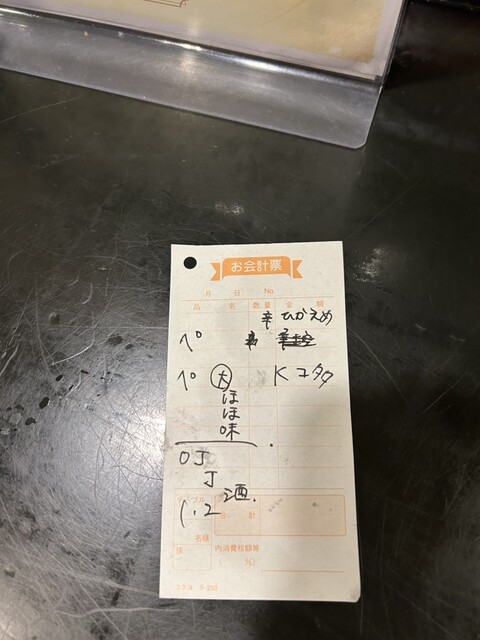 お会計票
月 日 No.
品 名 数量 金 額
辛 ひかえめ
ペ
ペ 大 K コタタ
ほ
ほ
味
OJ
J
酒.
テーブル 合 計
1.2
名様
係 内消費税額等
%)